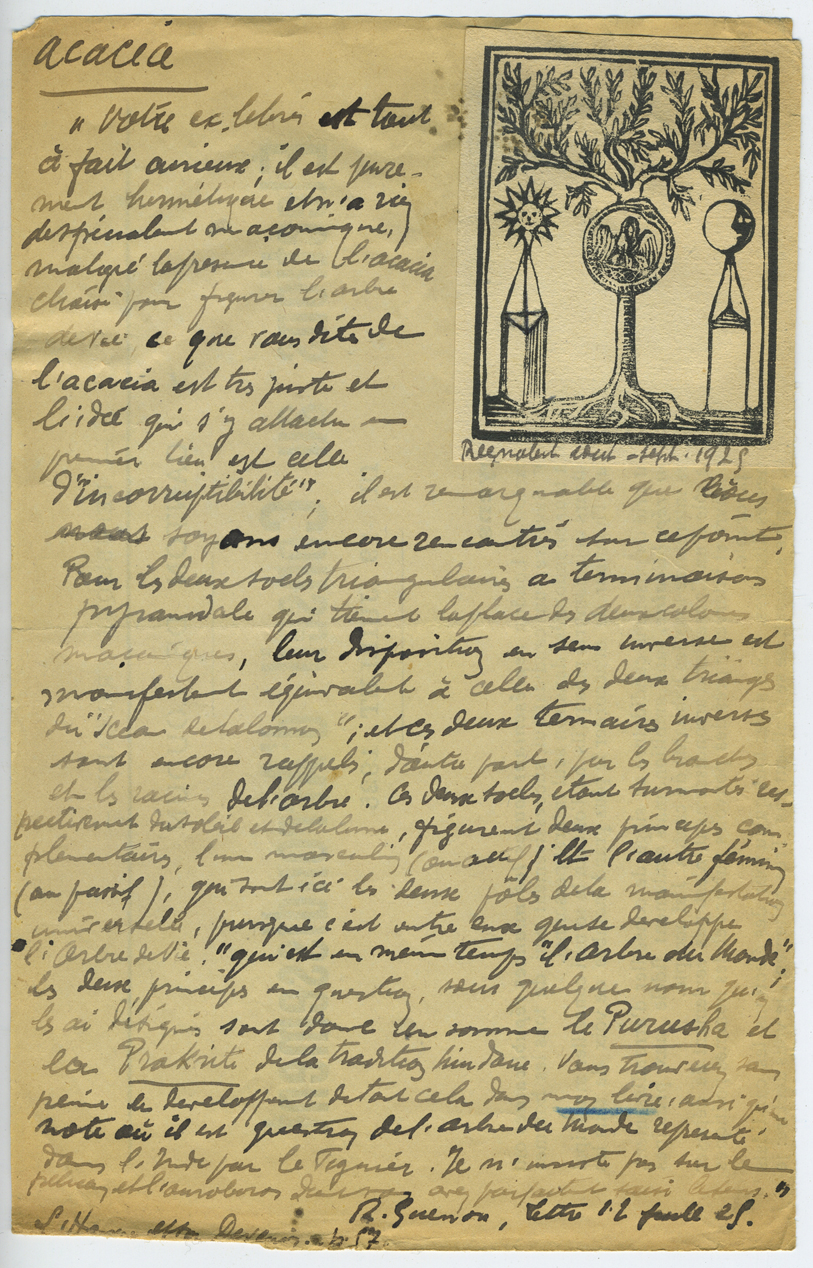 acacia
" Votre ex. libris est tout
à fait curieux ; il est pure-
ment hermétique et n'a rien
de spécialement maçonnique,
malgré la présence de l'acacia
choisi pour figurer l'arbre
de vie, ce que vous dites de
l'acacia est très juste et
l'idée qui s'y attache en
premier lieu est celle
d'"incorruptibilité" ; il est remarquable que nous
nous soyons encore rencontrés sur ce point.
Pour les deux socles triangulaires a terminaison
pyramidale qui tiennent la place des deux colonnes
maçonniques, leur disposition en sens inverse est
manifestement équivalent à celle des deux triangles
du "sceau de Salomon" ; et ces deux ternaires inverses
sont encore rappelés, d'autre part, par les branches
et les racines de l'arbre. Ces deux socles, étant surmontés res-
pectivement du soleil et de la lune, figurent deux principes com-
plémentaires, l'un masculin (ou actif) et l'autre féminin
(ou passif), qui sont ici les deux pôles de la manifestation
universelle, puisque c'est entre eux que se développe
l'Arbre de Vie, "qui est en même temps "l'Arbre du Monde" ;
les deux principes en question, sous quelque nom qu'on
les ai désignés sont donc en somme le Purusha et
la Prakriti de la tradition hindoue. Vous trouverez sans
peine le développement de tout cela dans mon livre, ainsi qu'une
note où il est question de l'arbre du Monde représenté
dans l'Inde par le figuier. Je n'insiste pas sur le
pélican et l'ouroboros dont vous avez parfaitement saisi le sens. "
R. Guenon, lettre 12 juill 25.
L'Homme et son Devenir. p. 57
Regnabit août - sept. 1925